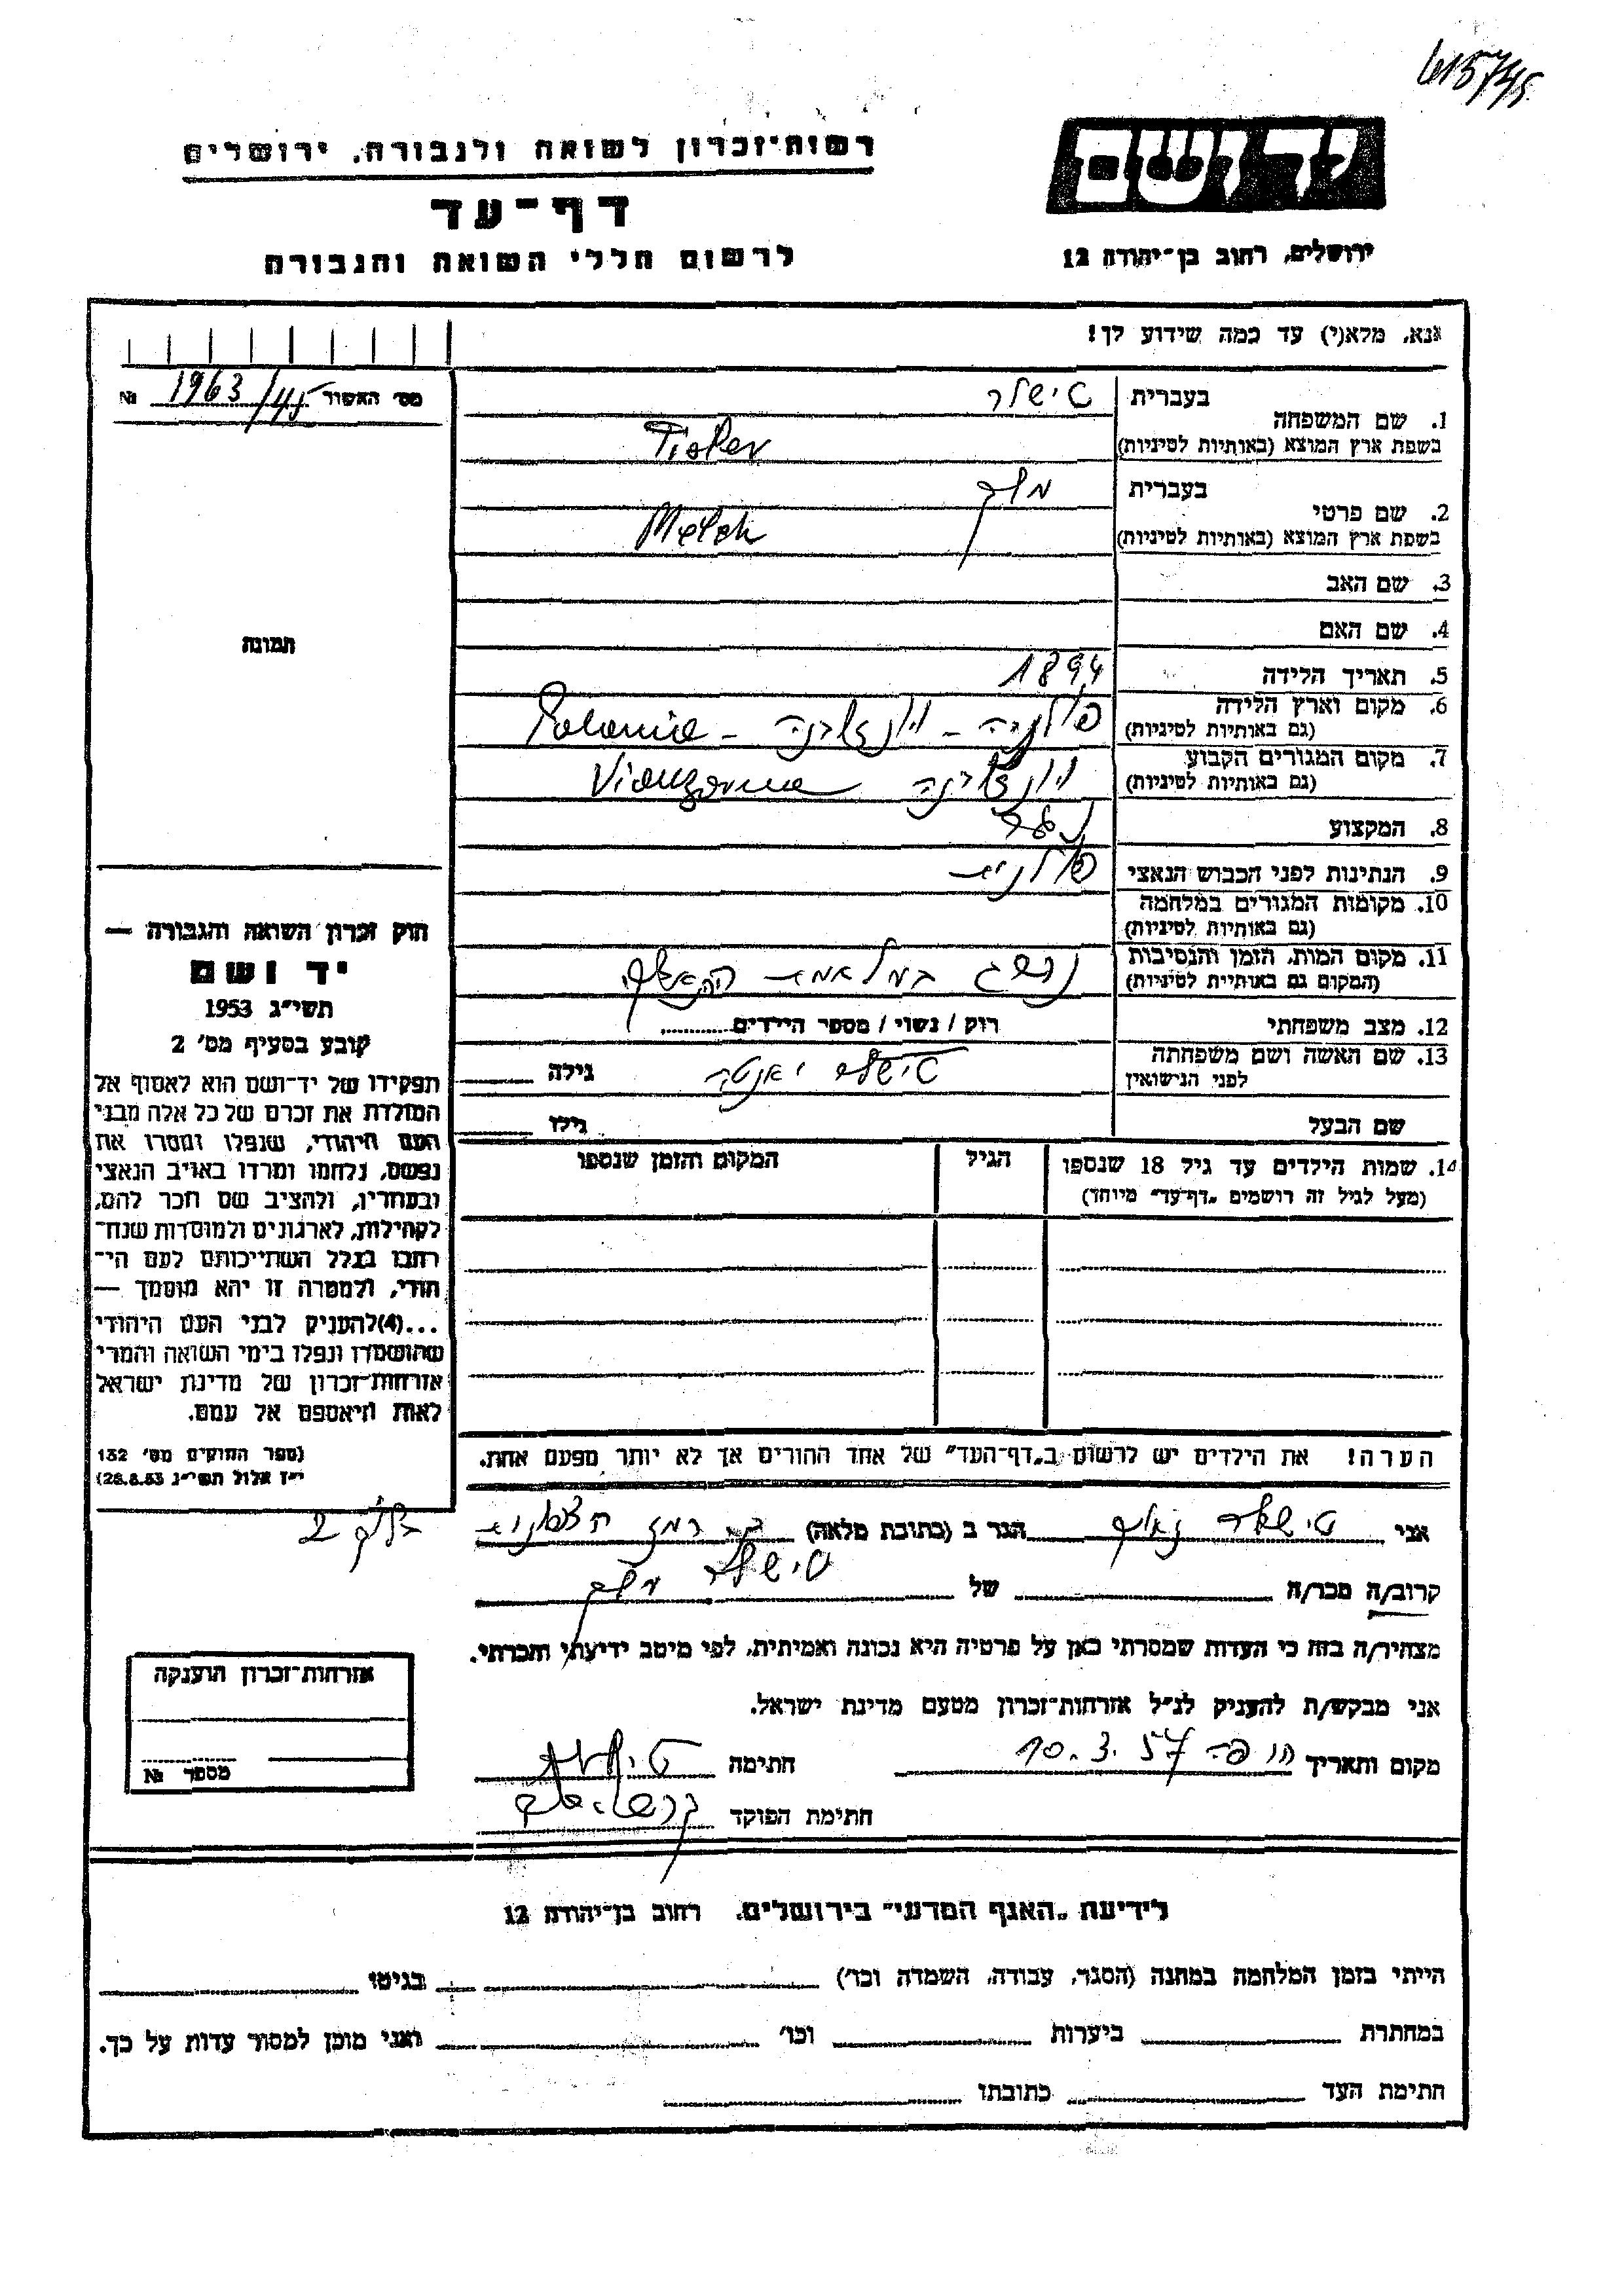 615745
רשות־זכרון לשואה ולגבורה, ירושלים
יד ושם
דף־עד
ירושלים, רחוב בן־יהודה 12
לרשום חללי השואה והגבורה
אנא, מלא(י) עד כמה שידוע לך!
מס׳ האשור 1963/45 №
1. שם המשפחה
בעברית
טישלר
בשפת ארץ המוצא (באותיות לטיניות)
Tisler
2. שם פרטי
בעברית
מלך
בשפת ארץ המוצא (באותיות לטיניות)
Melek
3. שם האב
4. שם האם
תמונה
5. תאריך הלידה
1894
6. מקום וארץ הלידה
(גם באותיות לטיניות)
פולניה - Polonia
7. מקום המגורים הקבוע
(גם באותיות לטיניות)
8. המקצוע
נגר
9. הנתינות לפני הכבוש הנאצי
פולנית
10. מקומות המגורים במלחמה
(גם באותיות לטיניות)
11. מקום המות, הזמן והנסיבות
(המקום גם באותיית לטיניות)
12. מצב משפחתי
רווק / נשוי / מספר הילדים
13. שם האשה ושם משפחתה
לפני הנישואין
טישלר יאנטה
גילה
שם הבעל
גילו
14. שמות הילדים עד גיל 18 שנספו
(מעל לגיל זה רושמים „דף־עד״ מיוחד)
הגיל
המקום והזמן שנספו
חוק זכרון השואה והגבורה —
יד ושם
תשי״ג 1953
קובע בסעיף מס׳ 2
תפקידו של יד־ושם הוא לאסוף אל
המולדת את זכרם של כל אלה מבני
העם היהודי, שנפלו ומסרו את
נפשם, נלחמו ומרדו באויב הנאצי
ובעוזריו, ולהציב שם וזכר להם,
לקהילות, לארגונים ולמוסדות שנח־
רבו בגלל השתייכותם לעם הי־
הודי, ולמטרה זו יהא מוסמך —
...(4) להעניק לבני העם היהודי
שהושמדו ונפלו בימי השואה והמרי
אזרחות־זכרון של מדינת ישראל
לאות היאספם אל עמם.
(ספר החוקים מס׳ 132
י״ז אלול תשי״ג 28.8.53)
הערה! את הילדים יש לרשום ב„דף־העד״ של אחד ההורים אך לא יותר מפעם אחת.
אני טישלר הגר ב (כתובת מלאה)
קרוב/ה מכר/ה של טישלר מלך
מצהיר/ה בזה כי העדות שמסרתי כאן על פרטיה היא נכונה ואמיתית, לפי מיטב ידיעתי והכרתי.
אני מבקש/ת להעניק לנ״ל אזרחות־זכרון מטעם מדינת ישראל.
מקום ותאריך חיפה 10.3.57 חתימה
חתימת הפוקד
אזרחות־זכרון הוענקה
מספר №
לידיעת „האגף המדעי״ בירושלים, רחוב בן־יהודה 12
הייתי בזמן המלחמה במחנה (הסגר, עבודה, השמדה וכו׳) בגיטו
במחתרת ביערות וכו׳ ואני מוכן למסור עדות על כך.
חתימת העד כתובתו